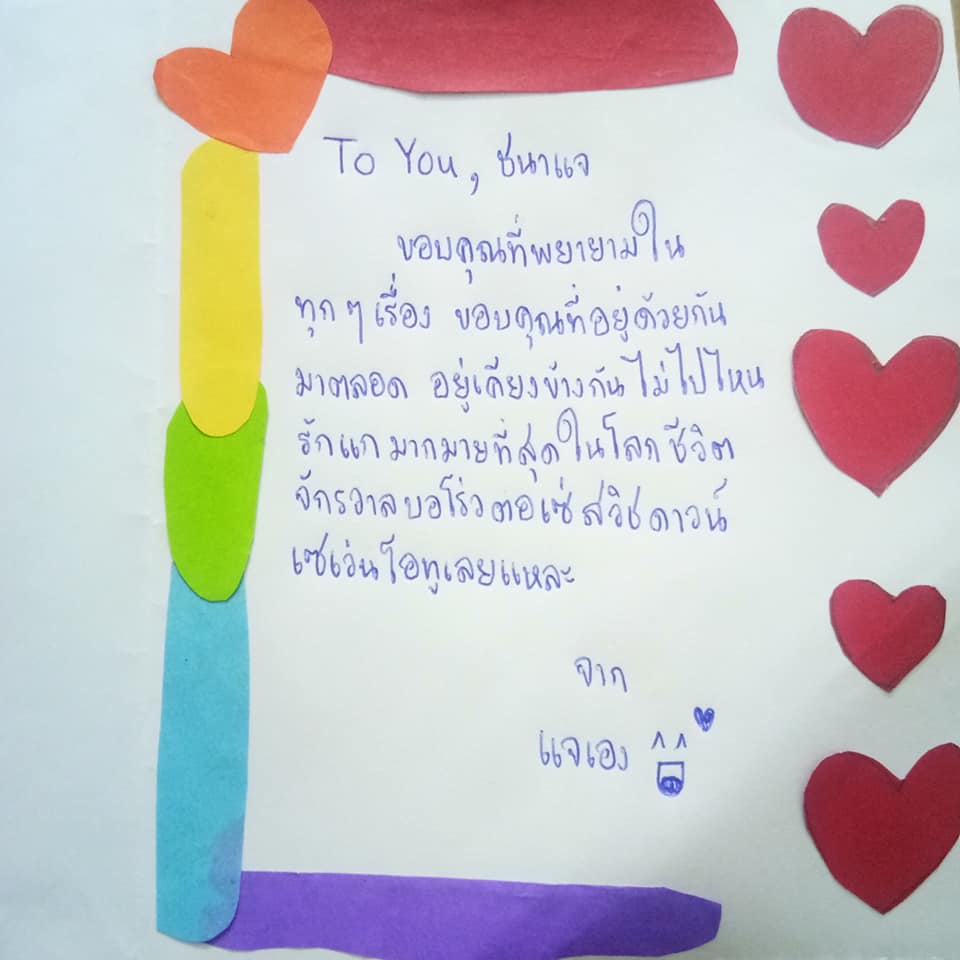 To You, ชนาแจ
ขอบคุณที่พยายามใน
ทุกๆเรื่อง ขอบคุณที่อยู่ด้วยกัน
มาตลอด อยู่เคียงข้างกันไม่ไปไหน
รักแกมากมายที่สุดในโลกชีวิต
จักรวาลบอโร่วตอเซ่สวิชดาวน์
เซเว่นโอทูเลยแหละ
จาก
แจเอง